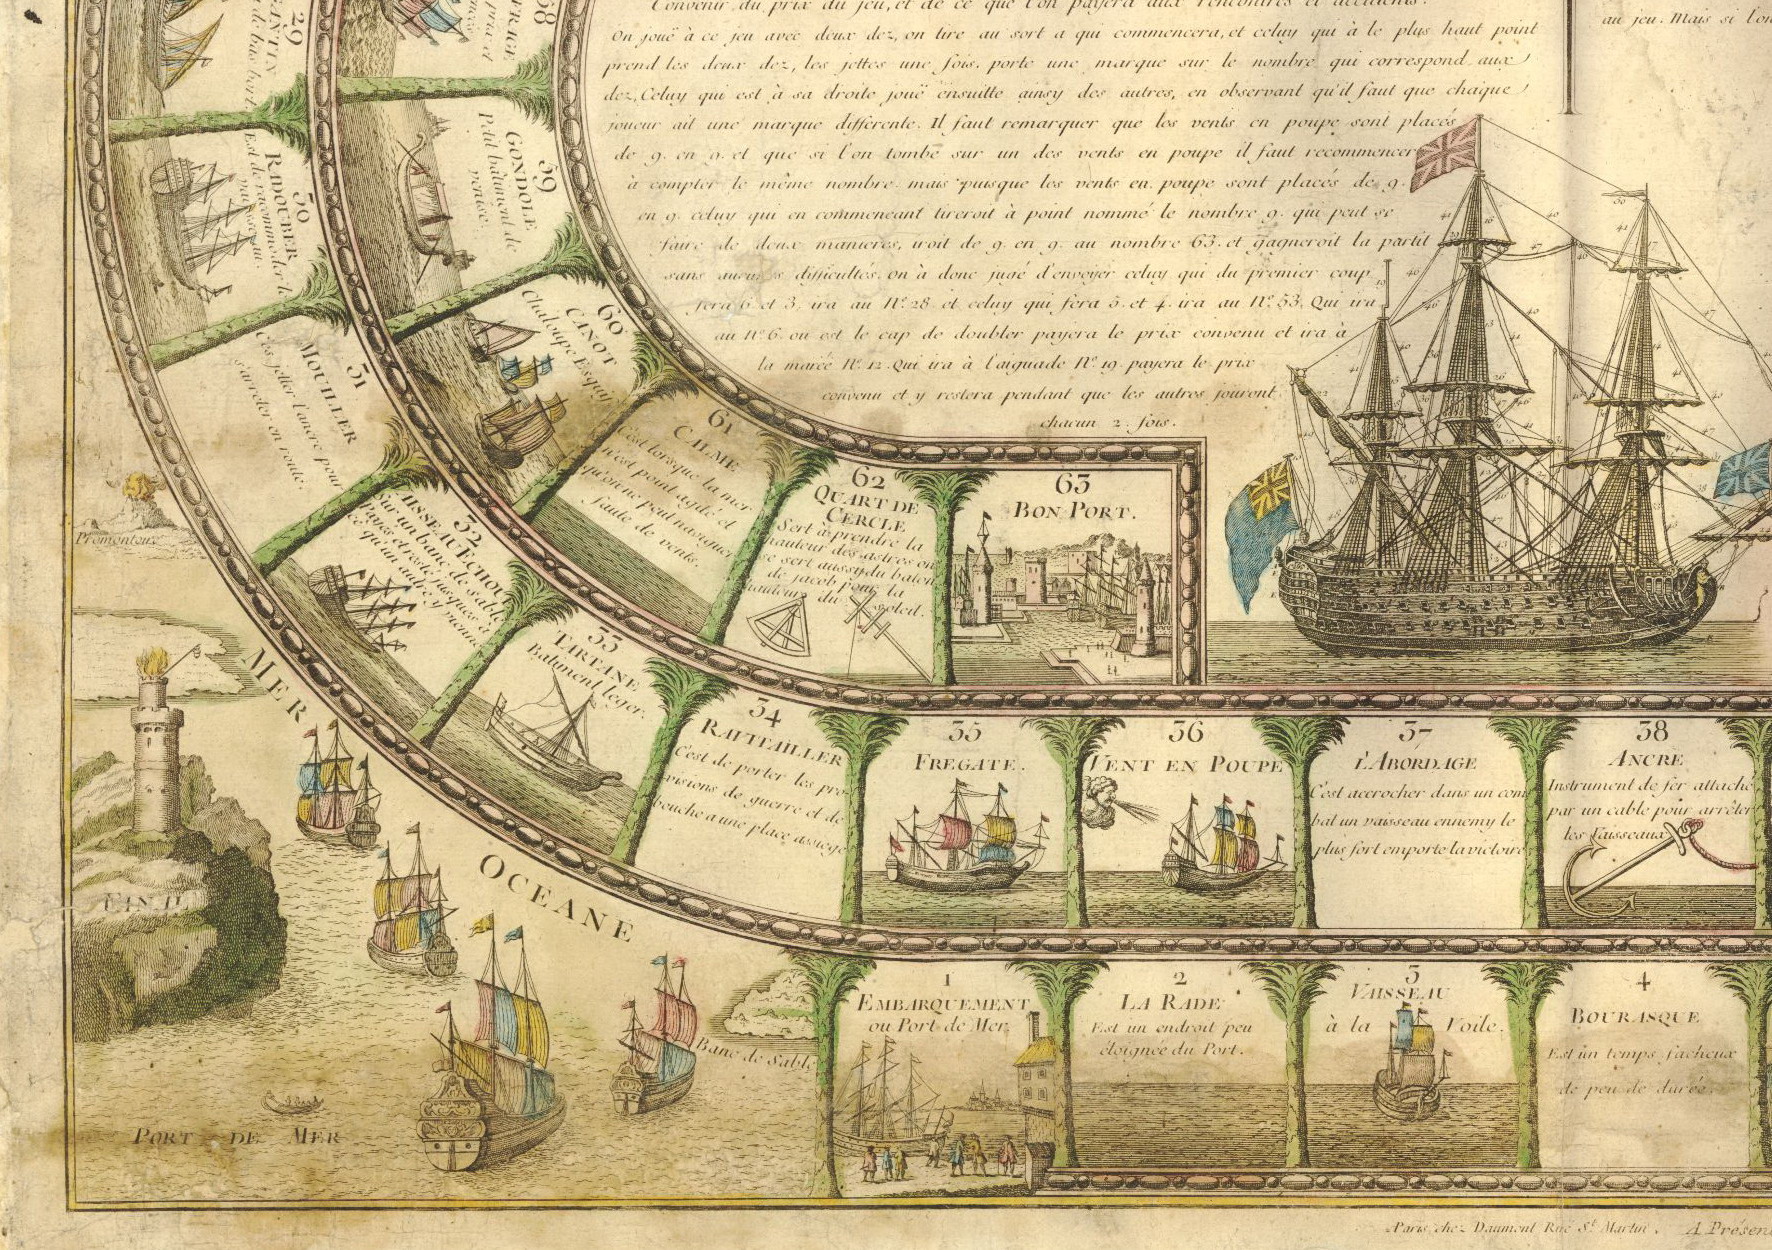 Convenir du prix du jeu, et de ce que l'on payera aux rencontres et accidents.
On jouë à ce jeu avec deux dez, on tire au sort a qui commencera, et celuy qui à le plus haut point
prend les deux dez, les jettes une fois, porte une marque sur le nombre qui correspond aux
dez, Celuy qui est à sa droite jouë ensuitte ainsy des autres, en observant qu'il faut que chaque
joueur ait une marque différente. Il faut remarquer que les vents en poupe sont placés
de 9. en 9. et que si l'on tombe sur un des vents en poupe il faut recommencer
à compter le même nombre. mais puisque les vents en poupe sont placés de 9.
en 9. celuy qui en commencant tireroit à point nommé le nombre 9. qui peut se
faire de deux manieres, iroit de 9. en 9. au nombre 63. et gagneroit la partit
sans difficultés. on à donc jugé d'envoyer celuy qui du premier coup
fera 6 et 3. ira au Nº. 28. et celuy qui fera 5. et 4. ira au Nº. 53. Qui ira
au Nº 6 ou est le cap de doubler payera le prix convenu et ira à
la marée Nº. 12. Qui ira à l'aiguade Nº. 19. payera le prix
convenu et y restera pendant que les autres jouront
chacun 2. fois.
au jeu. Mais si l'on
29
30
RADOUBER
Est de raccommoder le
vaisseau.
31
MOUILLER
C'est jetter l'ancre pour
s'arreter en route.
32
VAISSEAU ECHOUÉ
Sur un banc de sable
33
TARTANE
Batiment leger.
34
RAVITAILLER
C'est de porter les pro
visions de guerre et de
bouche a une place assiegé
35
FREGATE.
36
VENT EN POUPE
37
l'ABORDAGE
C'est accrocher dans un com
bat un vaisseau ennemy le
plus fort emporte la victoire
38
ANCRE
Instrument de fer attaché
par un cable pour arrêter
les Vaisseaux
58
59
GONDOLE
Petit batiment de
venise.
60
CANOT
Chaloupe Esquif
61
CALME
C'est lorsque la mer
n'est point agité et
qu'on ne peut naviguer
faute de vents.
62
QUART DE
CERCLE
Sert à prendre la
hauteur des astres on
se sert aussy du baton
de jacob pour la
hauteur du soleil.
63
BON PORT.
1
EMBARQUEMENT
ou Port de Mer
2
LA RADE
Est un endroit peu
éloignée du Port.
3
VAISSEAU
à la Voile.
4
BOURASQUE
Est un temps facheux
de peu de durée.
Promontoire
MER
OCEANE
FANAL
Banc de Sable
PORT DE MER
Paris chez Daumont Rue St. Martin. A Présen